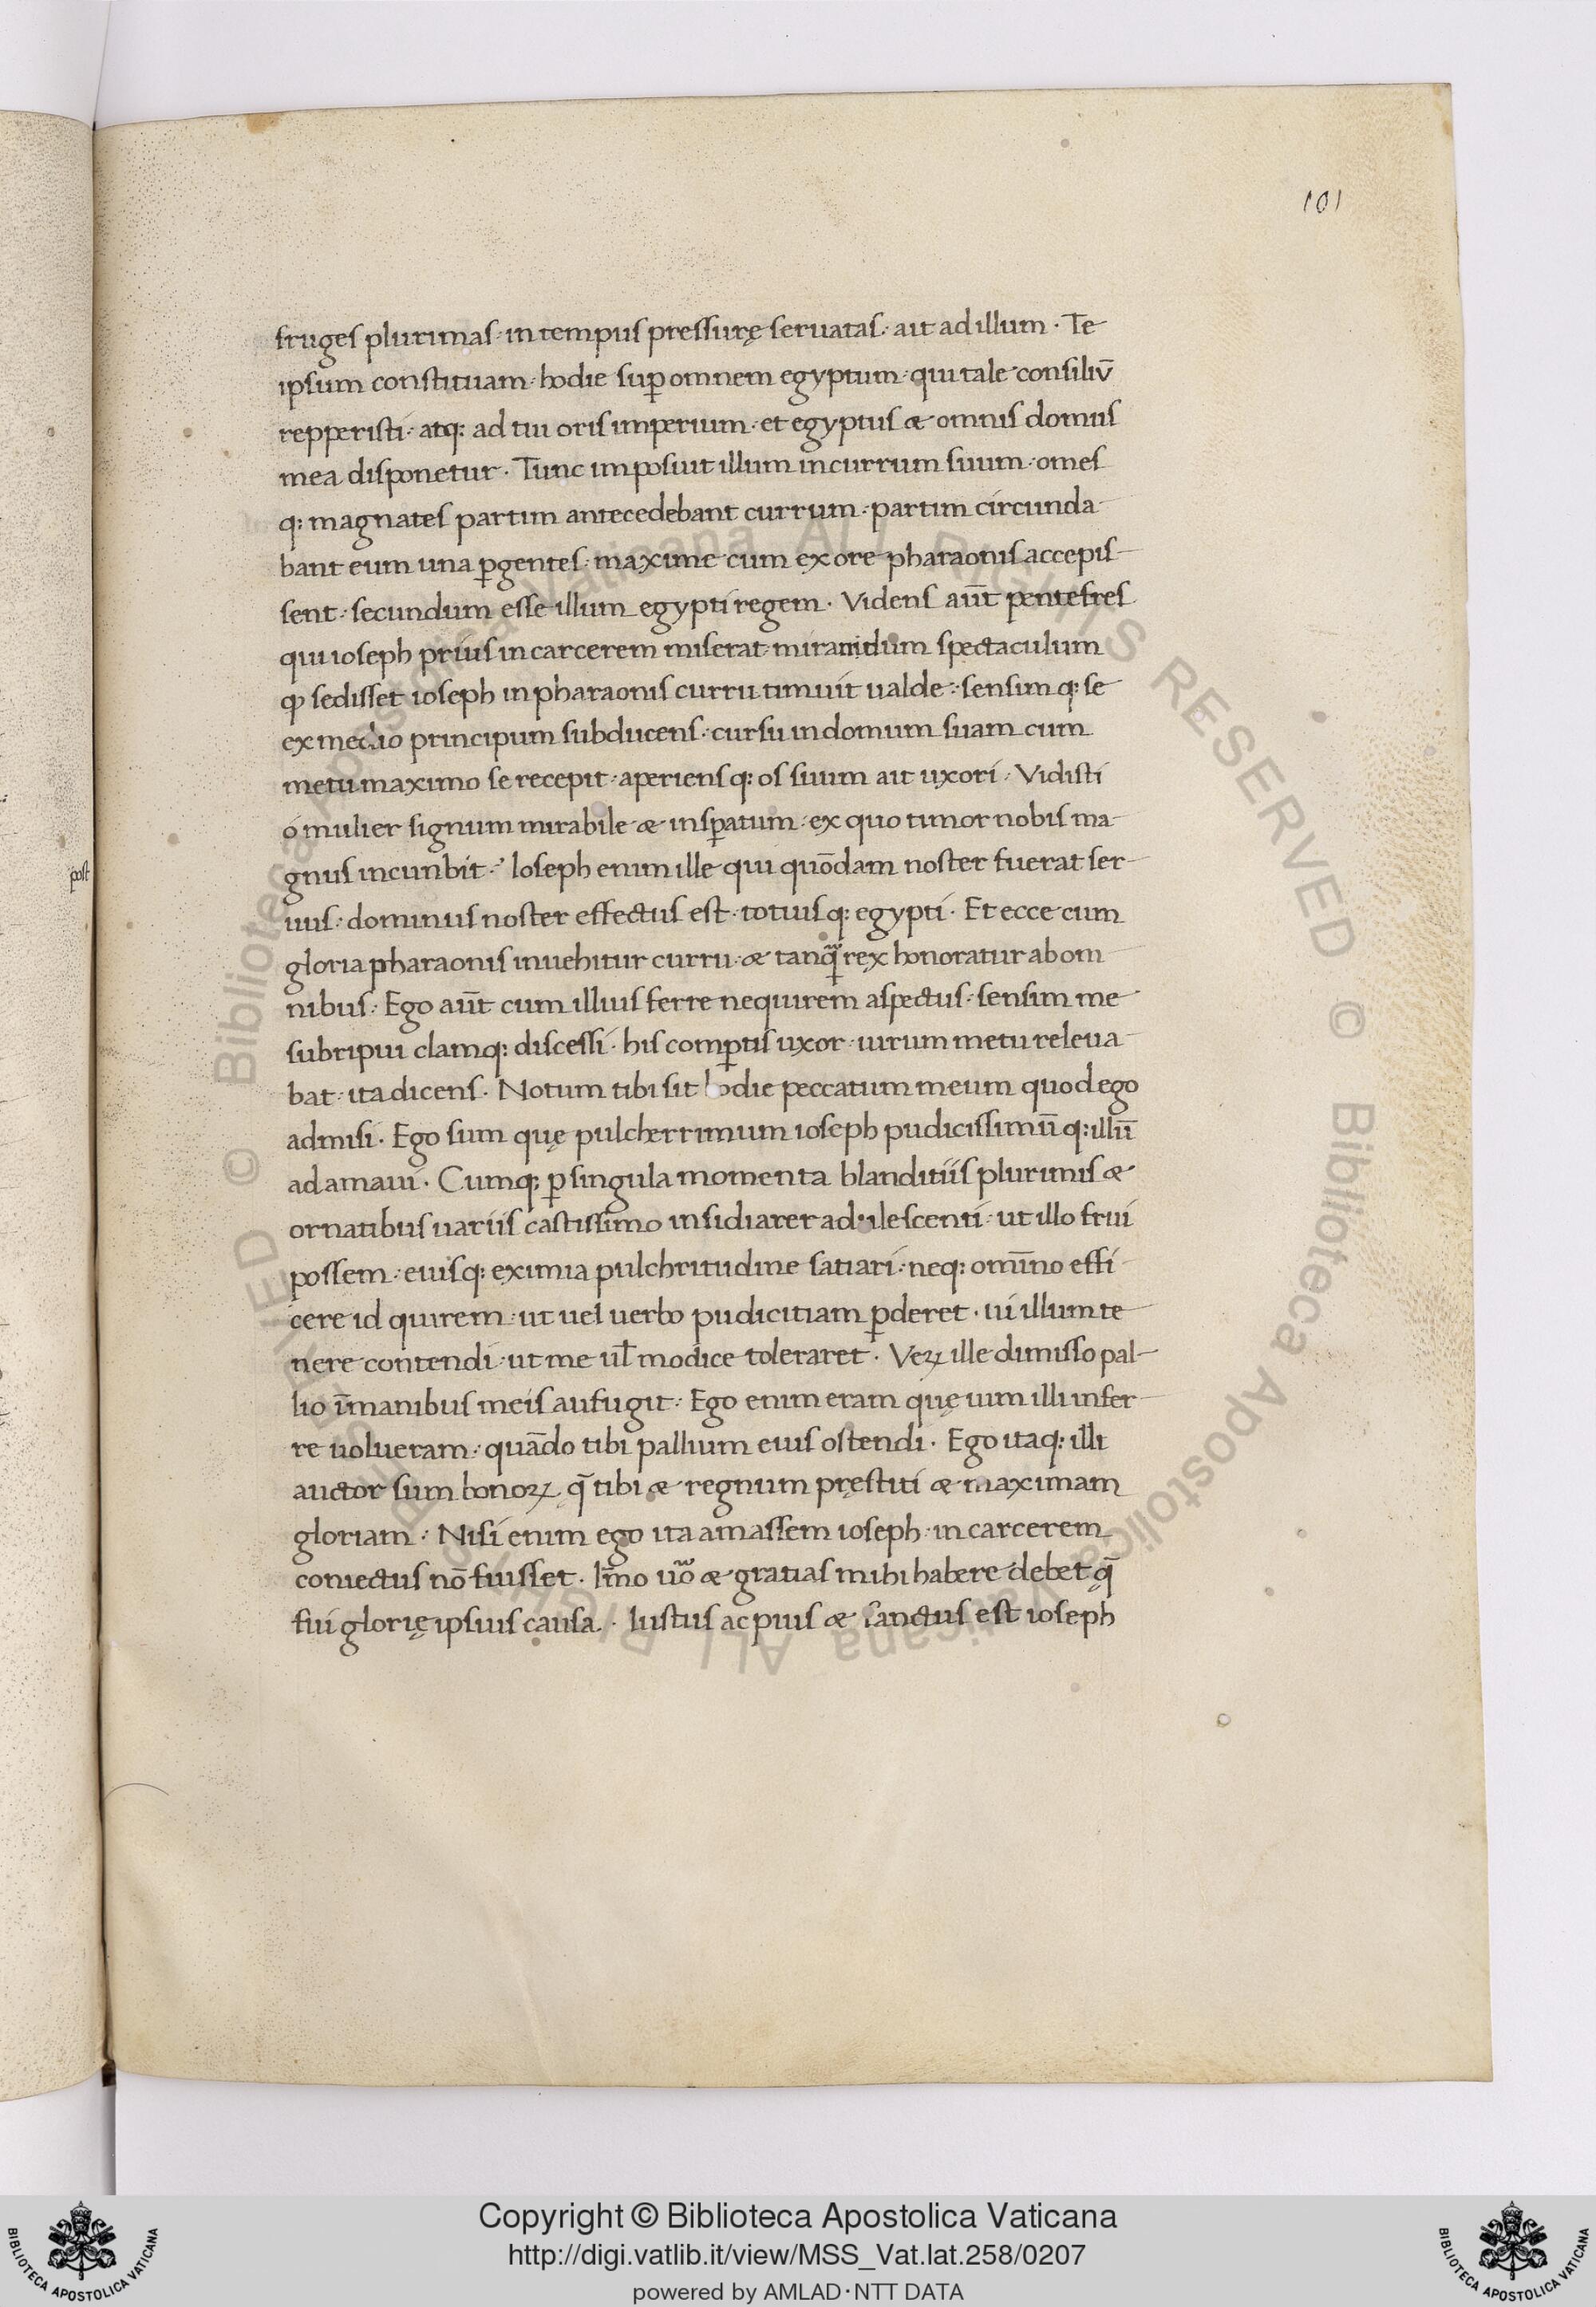 101
fruges plurimas · in tempus pressurę seruatas · ait ad illum · Te
ipsum constituam · hodie suꝑ omnem egyptum · qui tale consiliū
repperisti · atq: ad tui oris imperium · et egyptus & omnis domus
mea disponetur · Tunc imposuit illum in currum suum · omēs
q: magnates partim antecedebant currum · partim circunda
bant eum una ꝑgentes · maxime cum ex ore pharaonis accepis
sent · secundum esse illum egypti regem · Videns aūt pentefres
qui ioseph prius in carcerem miserat · mirandum spectaculum
ꝙ sedisset ioseph in pharaonis curru timuit ualde · sensimq: se
ex medio principum subducens · cursu in domum suam cum
metu maximo se recepit · aperiensq: os suum ait uxori · Vidisti
ó mulier signum mirabile & insꝑatum · ex quo timor nobis ma-
gnus incunbit · Ioseph enim ille qui quōdam noster fuerat ser-
uus · dominus noster effectus est · totiusq: egypti · Et ecce cum
gloria pharaonis inuehitur curru · & tanq̄ rex honoratur ab om
nibus · Ego aūt cum illius ferre nequirem aspectus · sensim me
subripui clamq: discessi · his comꝑtis uxor · uirum metu releua
bat · ita dicens · Notum tibi sit hodie peccatum meum quod ego
admisi · Ego sum quę pulcherrimum ioseph pudicissimūq: illū
adamaui · Cumq: ꝑ singula momenta blanditiis plurimis &
ornatibus uariis castissimo insidiarer adulescenti · ut illo frui
possem · eiusq: eximia pulchritudine satiari · neq: omīno effi
cere id quirem · ut uel uerbo pudicitiam ꝑderet · ui illum te
nere contendi · ut me uł modice toleraret · Veꝝ ille dimisso pal-
lio ī manibus meis aufugit · Ego enim eram quę uim illi infer
re uolueram · quādo tibi pallium eius ostendi · Ego itaq: illi
auctor sum bonoꝝ q̄ tibi & regnum pręstiti & maximam
gloriam · Nisi enim ego ita amassem ioseph · in carcerem
coniectus nō fuisset · Im̄o uo̅ & gratias mihi habere debet q̄
fui glorię ipsius causa · Iustus ac pius & sanctus est ioseph
post
© Biblioteca Apostolica Vaticana ALL RIGHTS RESERVED
Copyright © Biblioteca Apostolica Vaticana
http://digi.vatlib.it/view/MSS_Vat.lat.258/0207
powered by AMLAD · NTT DATA
BIBLIOTECA APOSTOLICA VATICANA
BIBLIOTECA APOSTOLICA VATICANA